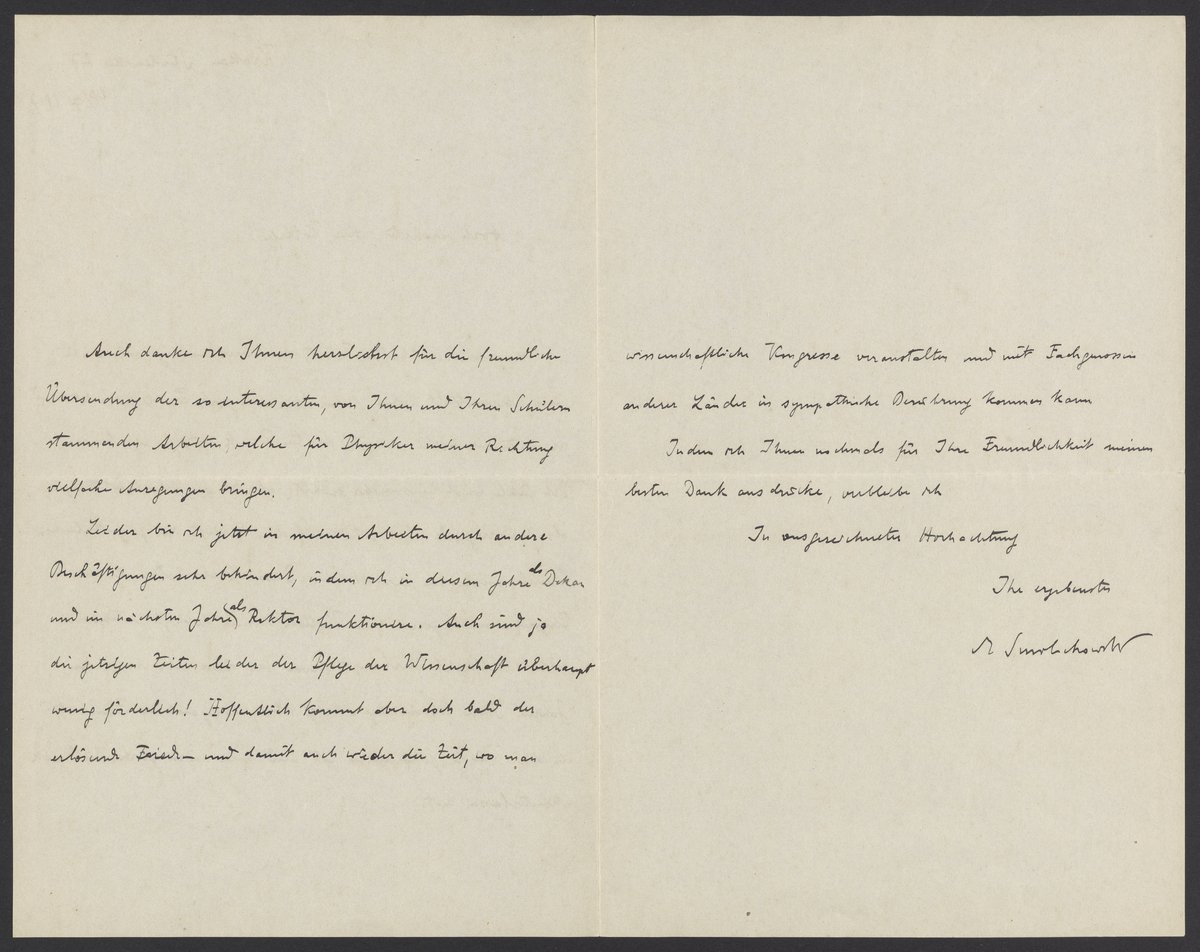 Auch danke ich Ihnen herzlichst für die freundliche
Übersendung der so interessanten, von Ihnen und Ihren Schülern
stammenden Arbeiten, welche für Physiker meiner Richtung
vielfache Anregungen bringen.
Leider bin ich jetzt in meinen Arbeiten durch andere
Beschäftigungen sehr behindert, indem ich in diesem Jahre als Dekan
und im nächsten Jahre (als) Rektor funktioniere. Auch sind ja
die jetzigen Zeiten leider der Pflege der Wissenschaft überhaupt
wenig förderlich! Hoffentlich kommt aber doch bald der
erlösende Friede – und damit auch wieder die Zeit, wo man
wissenschaftliche Kongresse veranstalten und mit Fachgenossen
anderer Länder in sympathische Berührung kommen kann
Indem ich Ihnen nochmals für Ihre Freundlichkeit meinen
besten Dank ausdrücke, verbleibe ich
In ausgezeichneter Hochachtung
Ihr ergebenster
M Smoluchowski